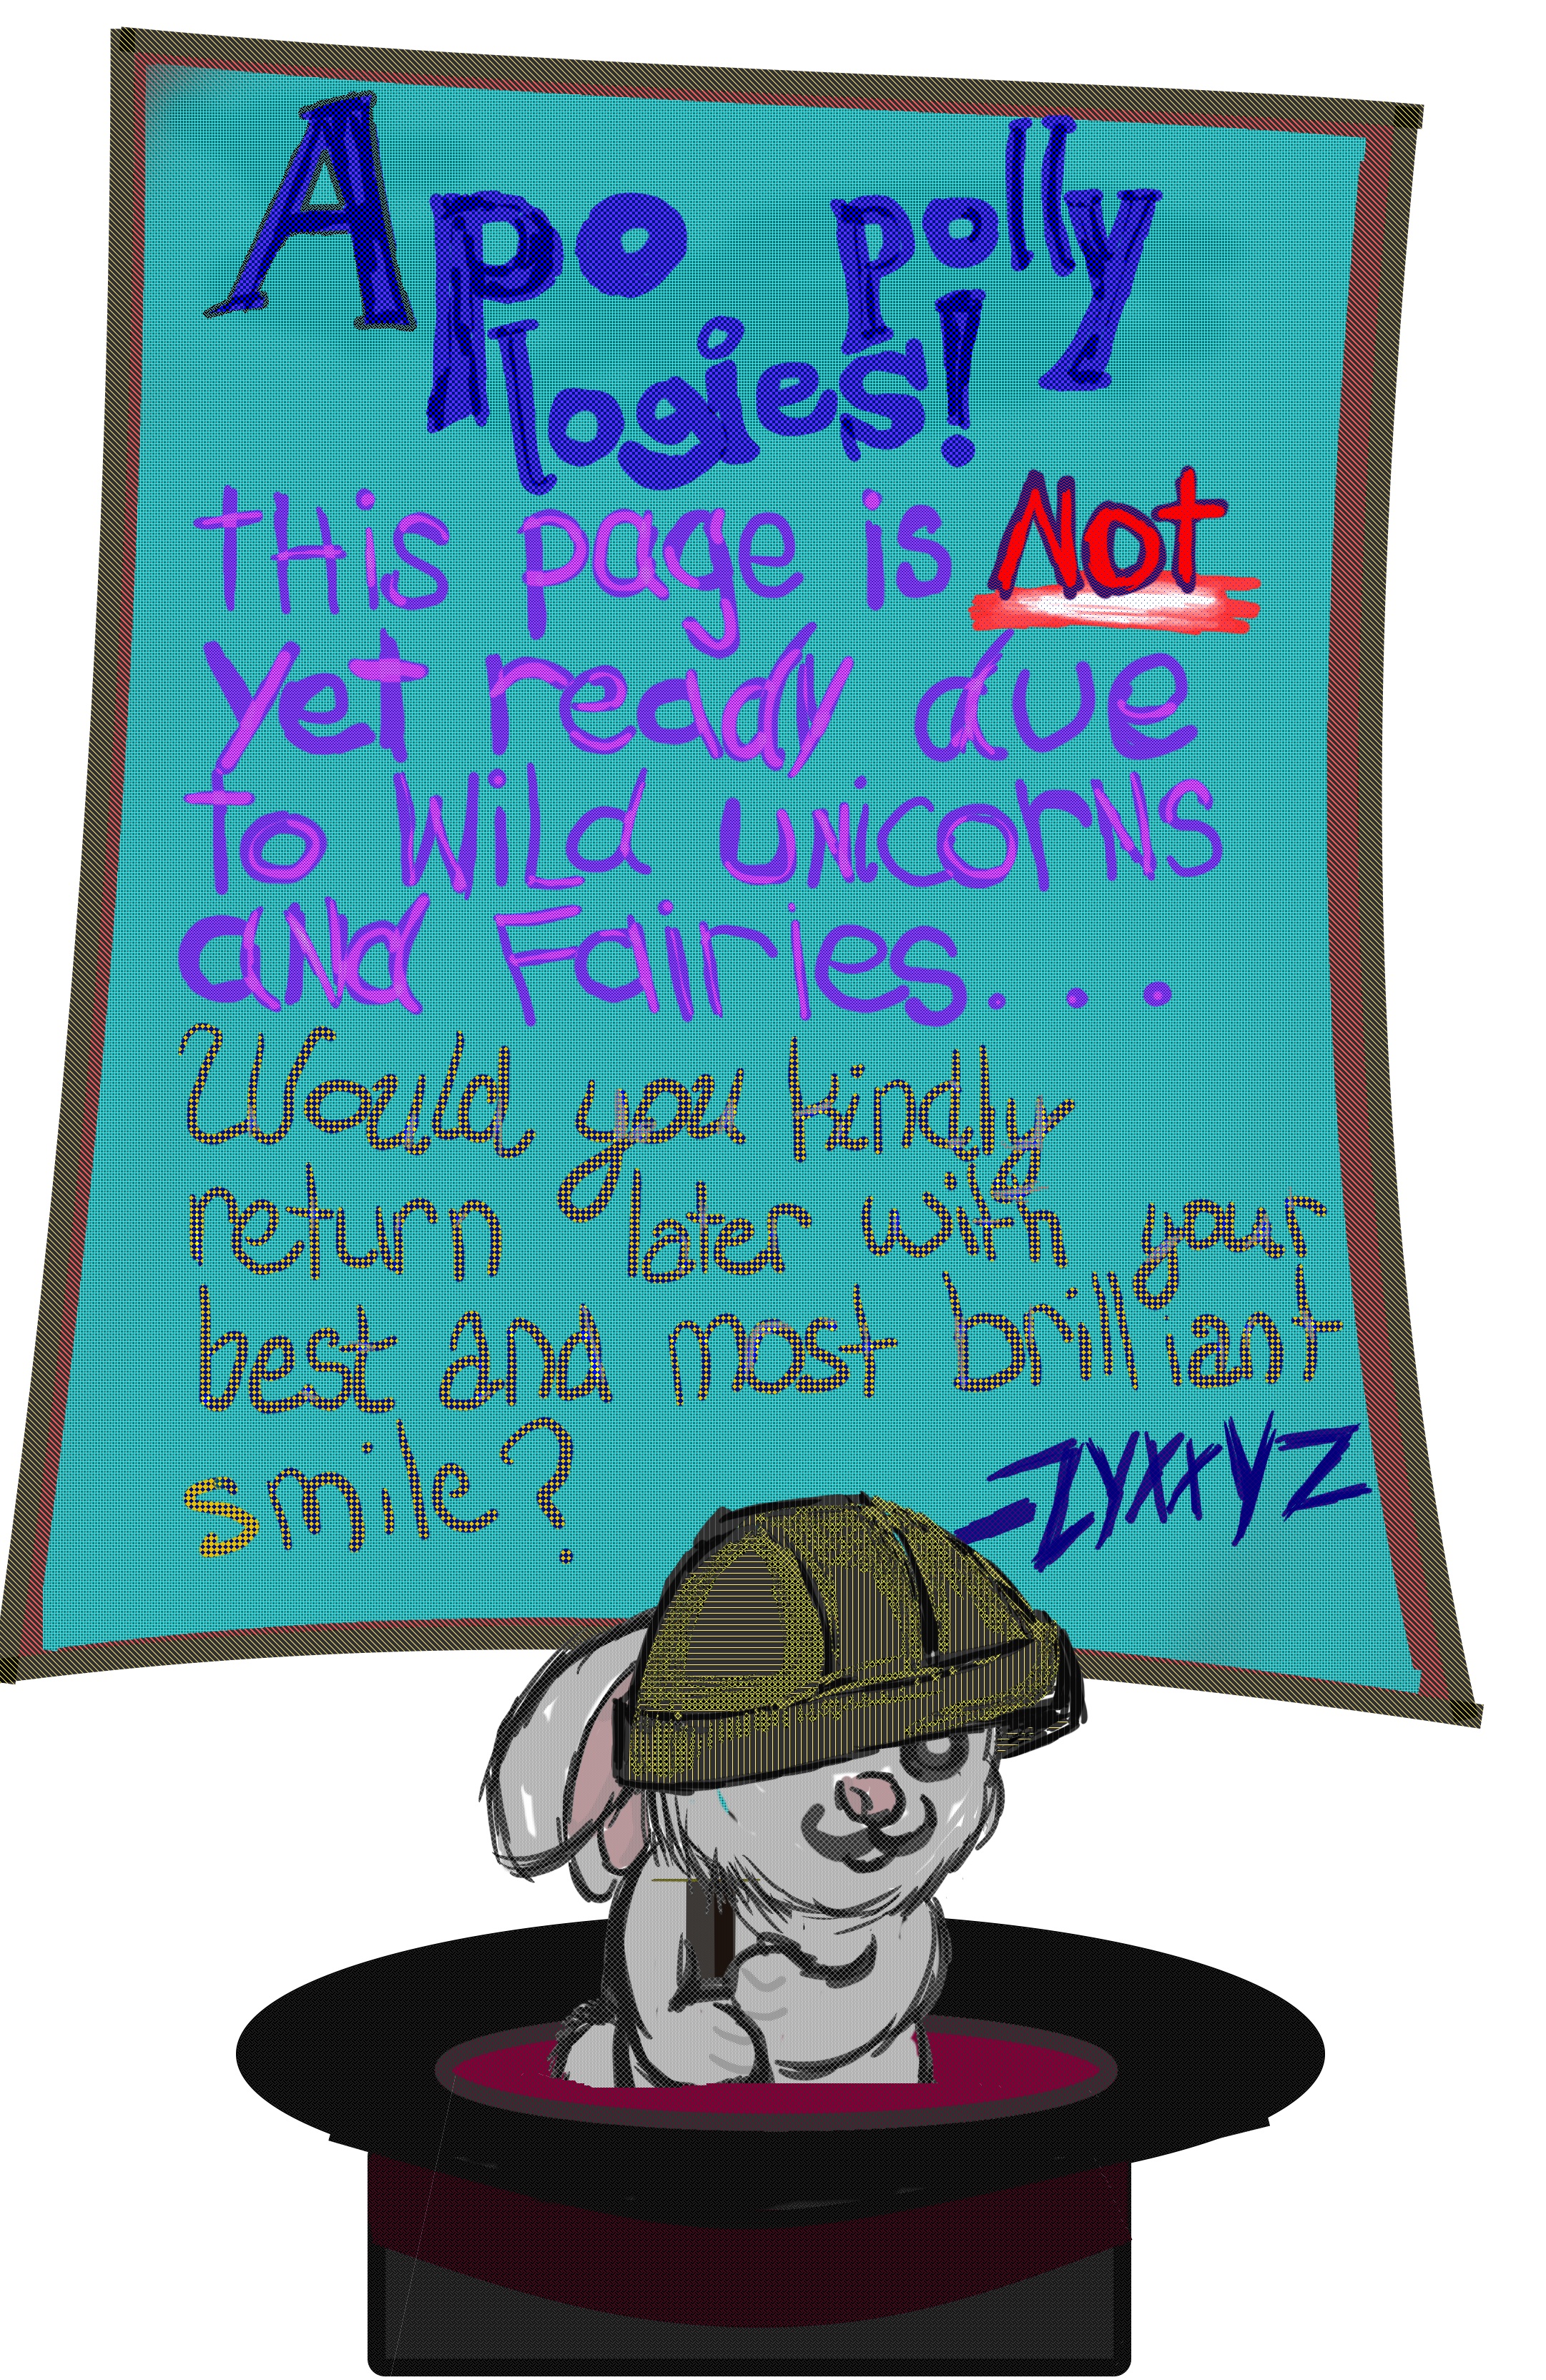 Apo polly
logies!
tHis page is Not
yet ready due
to WiLd uNicorNs
aNd Fairies...
Would you kindly
return later with your
best and most brilliant
smile?
-ZYXxYZ